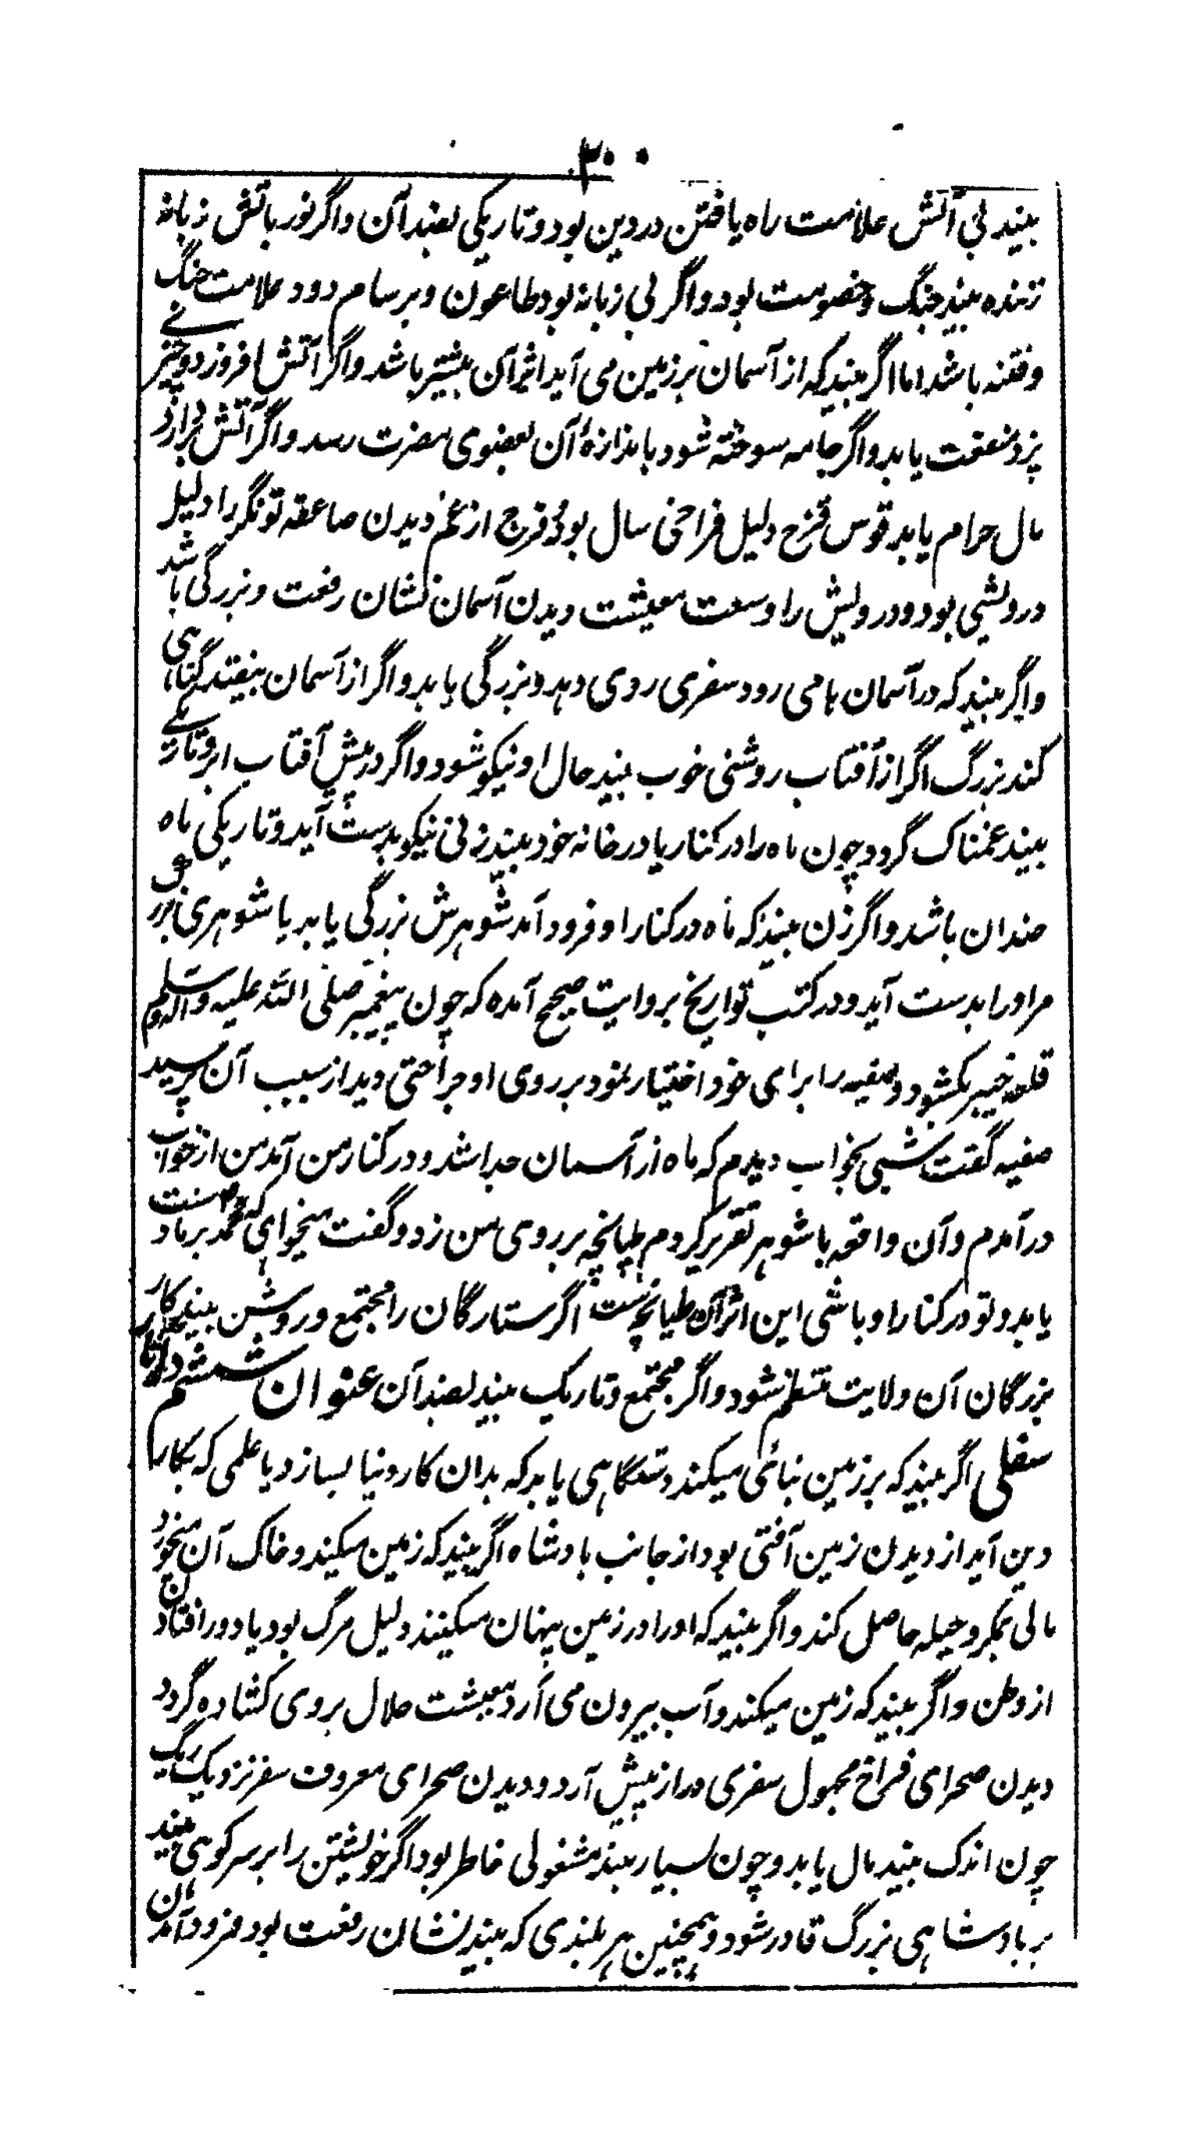 ۳۰۰
بیند بی آتش علامت راه یافتن در دین بود و تاریکی بضد آن و اگر نور با آتش زبانه
زننده بیند جنگ و خصومت بود و اگر بی زبانه بود طاعون و برسام دود علامت جنگ
و فتنه باشد اما اگر بیند که از آسمان بر زمین می آید اثر آن بیشتر باشد و اگر آتش افروزد و چیزے
پزد منفعت یابد و اگر جامه سوخته شود باندازهٔ آن بعضوی مضرت رسد و اگر آتش بردارد
مال حرام یابد قوس قزح دلیل فراخی سال بود و فرج از غم دیدن صاعقه تونگر را دلیل
درویشی بود و درویش را وسعت معیشت دیدن آسمان نشان رفعت و بزرگی باشد
و اگر بیند که در آسمان ها می رود سفری روی دهد و بزرگی یابد و اگر از آسمان بیفتد گناهی
کند بزرگ اگر از آفتاب روشنی خوب بیند حال او نیکو شود و اگر در پیش آفتاب ابر و تاریکے
بیند غمناک گردد چون ماه را در کنار یا در خانه خود بیند زنی نیکو بدست آید و تاریکی ماه
ضد آن باشد و اگر زن بیند که ماه در کنار او فرود آمد شوهرش بزرگی یابد یا شوهری بزرگ
مر او را بدست آید و در کتب تواریخ بروایت صحیح آمده که چون پیغمبر صلی الله علیه و آله وسلم
قلعه خیبر بکشود و صفیه را برای خود اختیار نمود بر روی او جراحتی دید از سبب آن پرسید
صفیه گفت شبی بخواب دیدم که ماه از آسمان جدا شد و در کنار من آمد من از خواب
در آمدم و آن واقعه با شوهر تقریر کردم طپانچه بر روی من زد و گفت میخواهی که محمد بر ما دست
یابد و تو در کنار او باشی این اثر آن طپانچه است اگر ستارگان را مجتمع و روشن بیند کار
بزرگان آن ولایت منتظم شود و اگر مجتمع و تاریک بیند بضد آن عنوان ششم در آثار
سفلی اگر بیند که بر زمین بنائی میکند دستگاهی یابد که بدان کار دنیا بسازد یا علمی که بکار
دین آید از دیدن زمین آفتی بود از جانب بادشاه اگر بیند که زمین میکند و خاک آن میخورد
مالی بمکر و حیله حاصل کند و اگر بیند که او را در زمین پنهان میکنند دلیل مرگ بود یا دور افتادن
از وطن و اگر بیند که زمین میکند و آب بیرون می آرد معیشت حلال بروی کشاده گردد
دیدن صحرای فراخ مجهول سفری دراز پیش آرد و دیدن صحرای معروف سفر نزدیک ریگ
چون اندک بیند مال یابد و چون بسیار بیند مشغولی خاطر بود اگر خویشتن را بر سر کوهی بیند
بر بادشاهی بزرگ قادر شود و همچنین هر بلندی که بیند نشان رفعت بود فرود آمدن